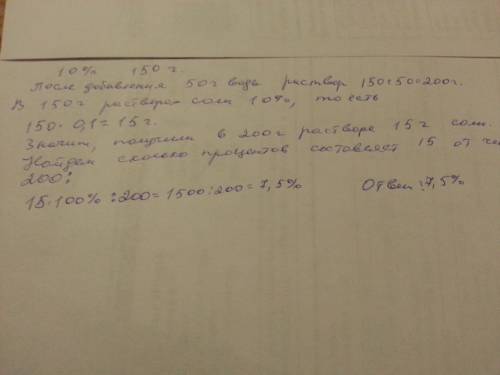 10% 150 г.
После добавления 50 г воды раствор 150+50=200г.
В 150 г раствора соли 10%, то есть
150 · 0,1 = 15 г.
Значит, получили в 200 г растворе 15 г соли.
Найдем сколько процентов составляет 15 от
200:
15·100% :200= 1500:200= 7,5% Ответ: 7,5%